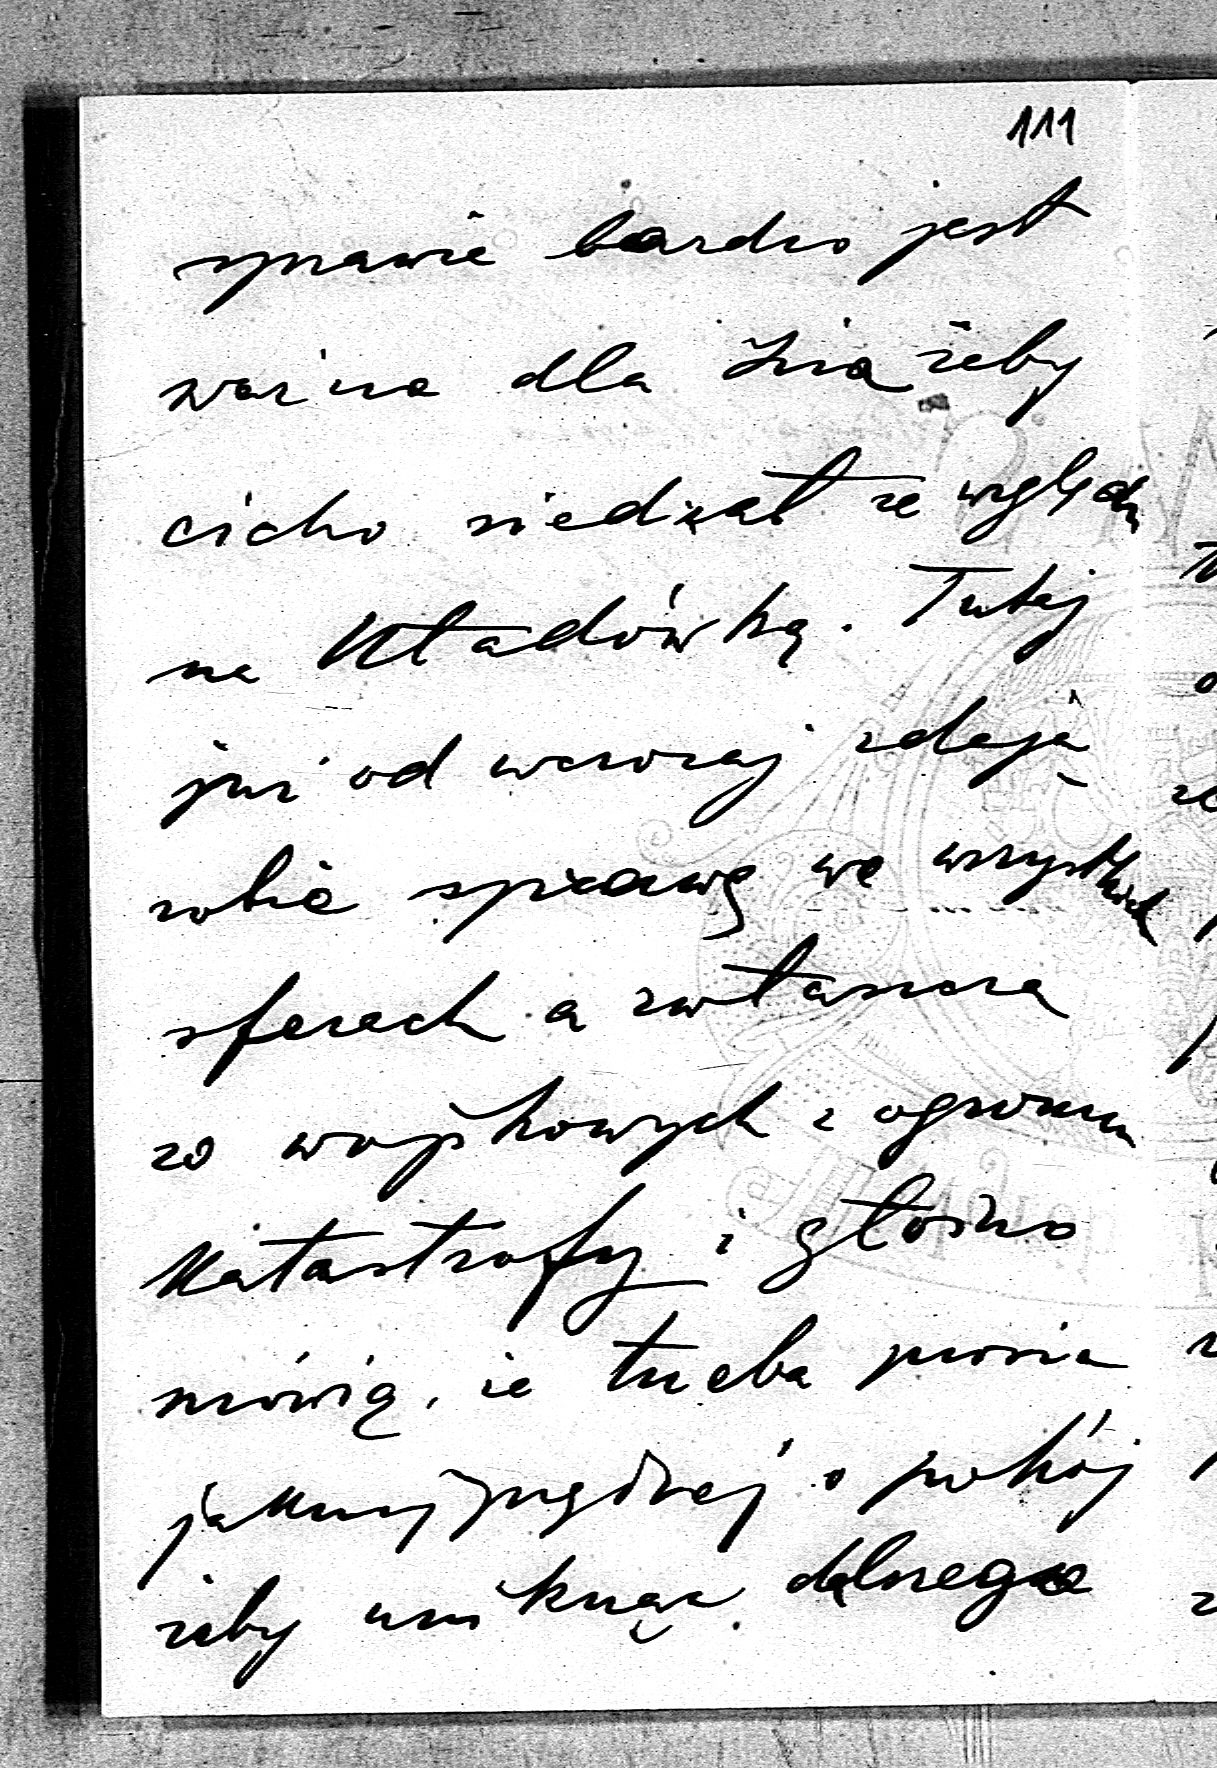 111
sprawie bardzo jest
ważne dla Zia żeby
cicho siedział ze względu
na Władówkę. Tutaj
już od wczoraj zdają
sobie sprawę we wszystkich
sferach a zwłaszcza
wojskowych z ogromu
Katastrofy i głośno
mówią, że trzeba prosić
jaknajprędzej o pokój
żeby uniknąć dalszego